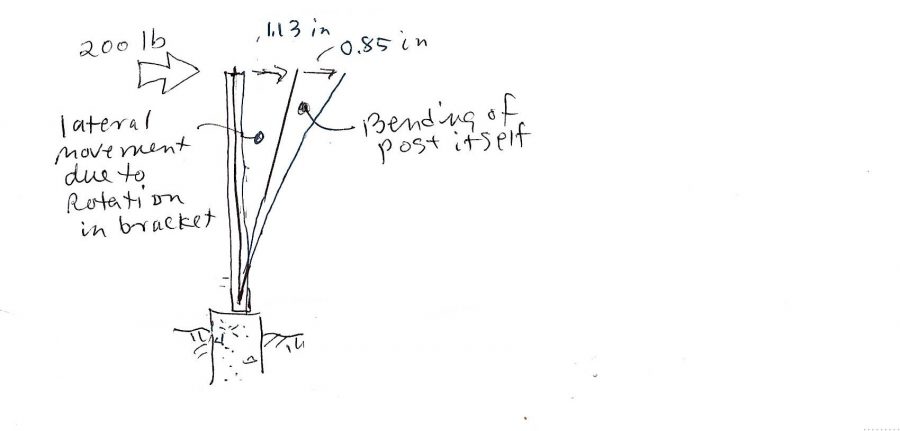 1.13 in
0.85 in
200 lb
lateral
movement
due to
Rotation
in bracket
Bending of
post itself